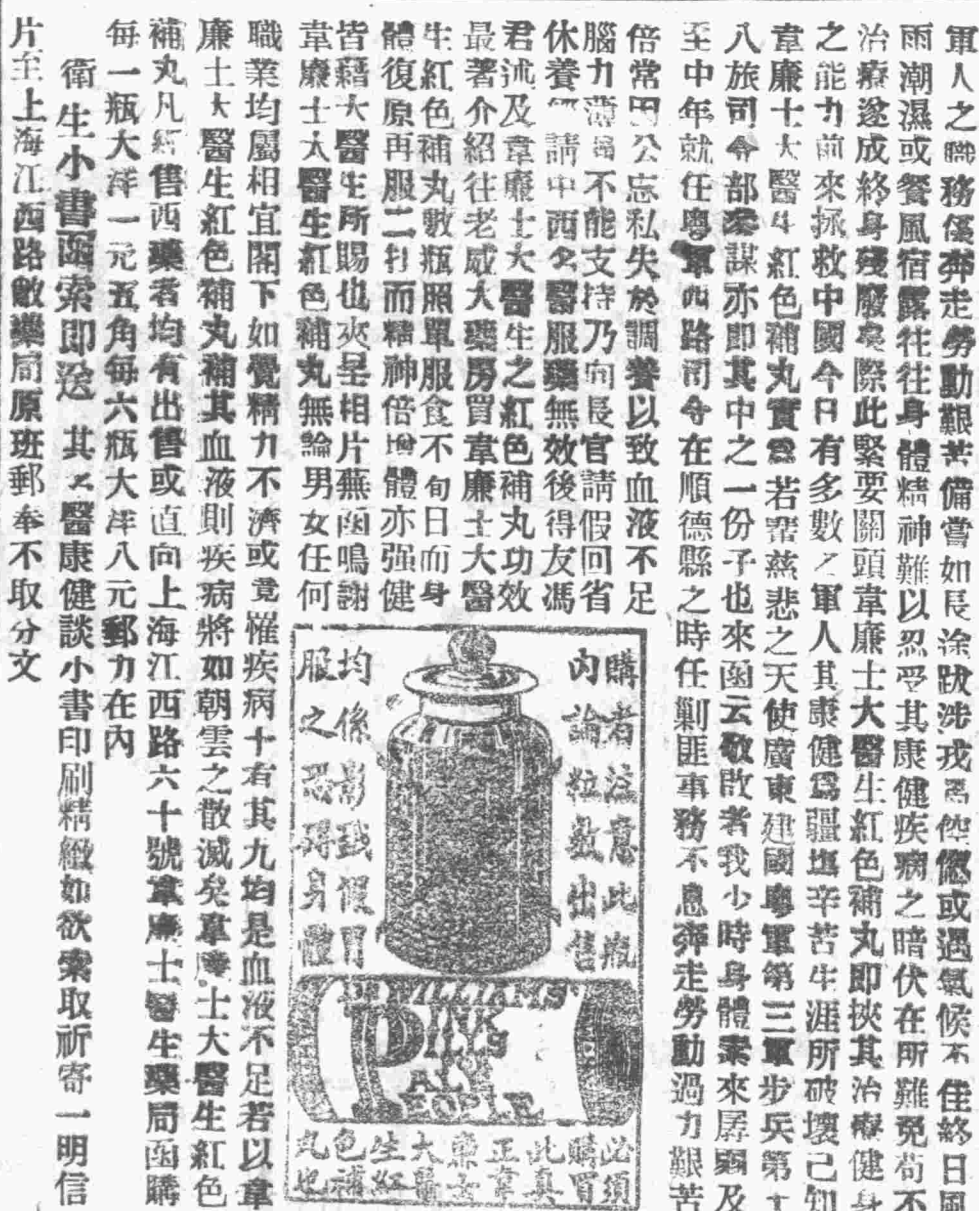 軍人之職務僅奔走勞動艱苦備嘗如長途跋涉戎馬倥傯或遇氣候不佳終日風
雨潮濕或餐風宿露往往身體精神難以忍受其康健疾病之暗伏在所難免苟不
治療遂成終身殘廢矣際此緊要關頭韋廉士大醫生紅色補丸即挾其治療健身
之能力前來拯救中國今日有多數之軍人其康健爲疆塲辛苦生涯所破壞已知
韋廉士大醫生紅色補丸實爲若輩慈悲之天使廣東建國粵軍第三軍步兵第十
八旅司令部參謀亦即其中之一份子也來函云敬啟者我少時身體素來孱弱及
至中年就任粵軍四路司令在順德縣之時任剿匪事務不息奔走勞動過力艱苦
倍常因公忘私失於調養以致血液不足
腦力薄弱不能支持乃向長官請假回省
休養 請中西名醫服藥無效後得友馮
君述及韋廉士大醫生之紅色補丸功效
最著介紹往老威大藥房買韋廉士大醫
生紅色補丸數瓶照單服食不旬日而身
體復原再服二打而精神倍增體亦强健
皆藉大醫生所賜也夾呈相片蕪函鳴謝
韋廉士大醫生紅色補丸無論男女任何
職業均屬相宜閣下如覺精力不濟或竟罹疾病十有其九均是血液不足若以韋
廉士大醫生紅色補丸補其血液則疾病將如朝雲之散滅矣韋廉士大醫生紅色
補丸凡經售西藥者均有出售或直向上海江西路六十號韋廉士醫生藥局函購
每一瓶大洋一元五角每六瓶大洋八元郵力在內
衛生小書函索即送 其大醫康健談小書印刷精緻如欲索取祈寄一明信
片至上海江西路敝藥局原班郵奉不取分文
購者注意此瓶
內論粒數出售
均係影戤假冒
服之恐碍身體
DR WILLIAMS'
PINK
PILLS
PALE
PEOPLE
必須
購買
此眞
正韋
廉士
大醫
生紅
色補
丸也